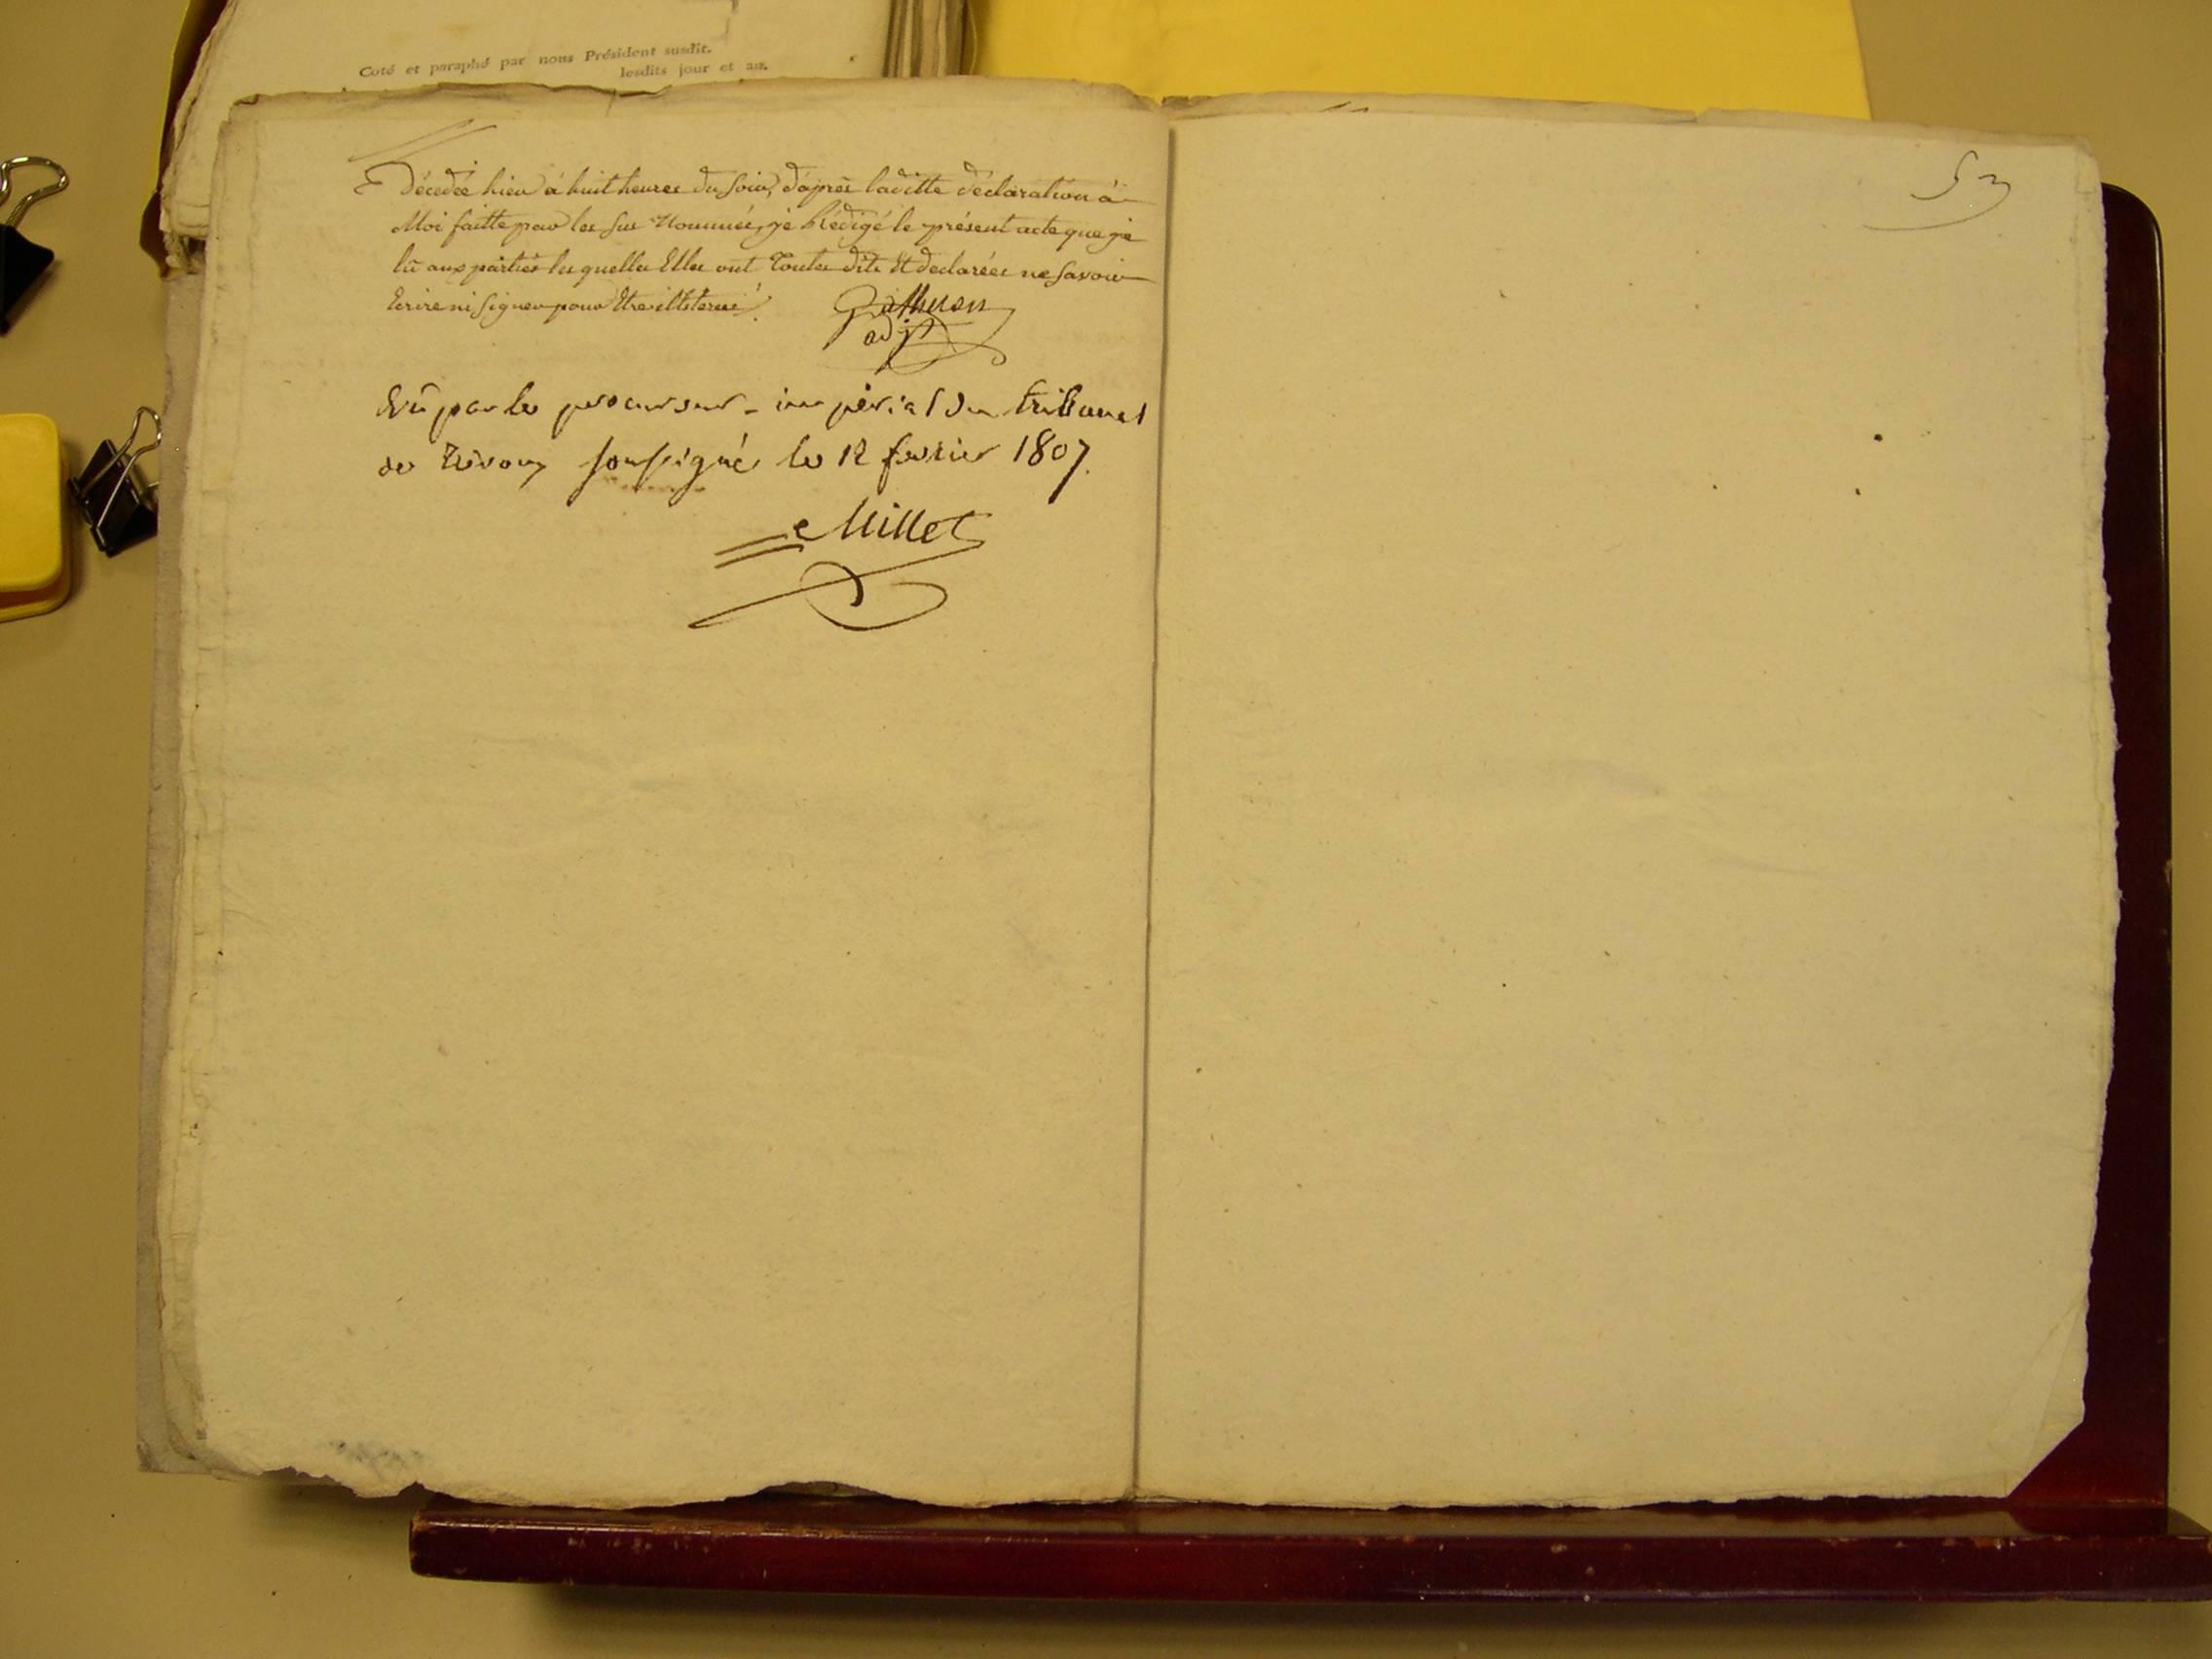 Coté et paraphé par nous Président susdit.
lesdits jour et an.
Décedée hier à huit heures du soir, d'après laditte déclaration à
Moi faitte par les sus Nommés, jé Rédigé le présent acte que jé
lû aux parties les quelles Elles ont Toutes dits Et declarées ne Savoir
Ecrire ni Signer pour Etre
adjt
Vû par le procureur impérial du tribunal
de Trévoux soussigné le 12 fevrier 1807.
Millet
53